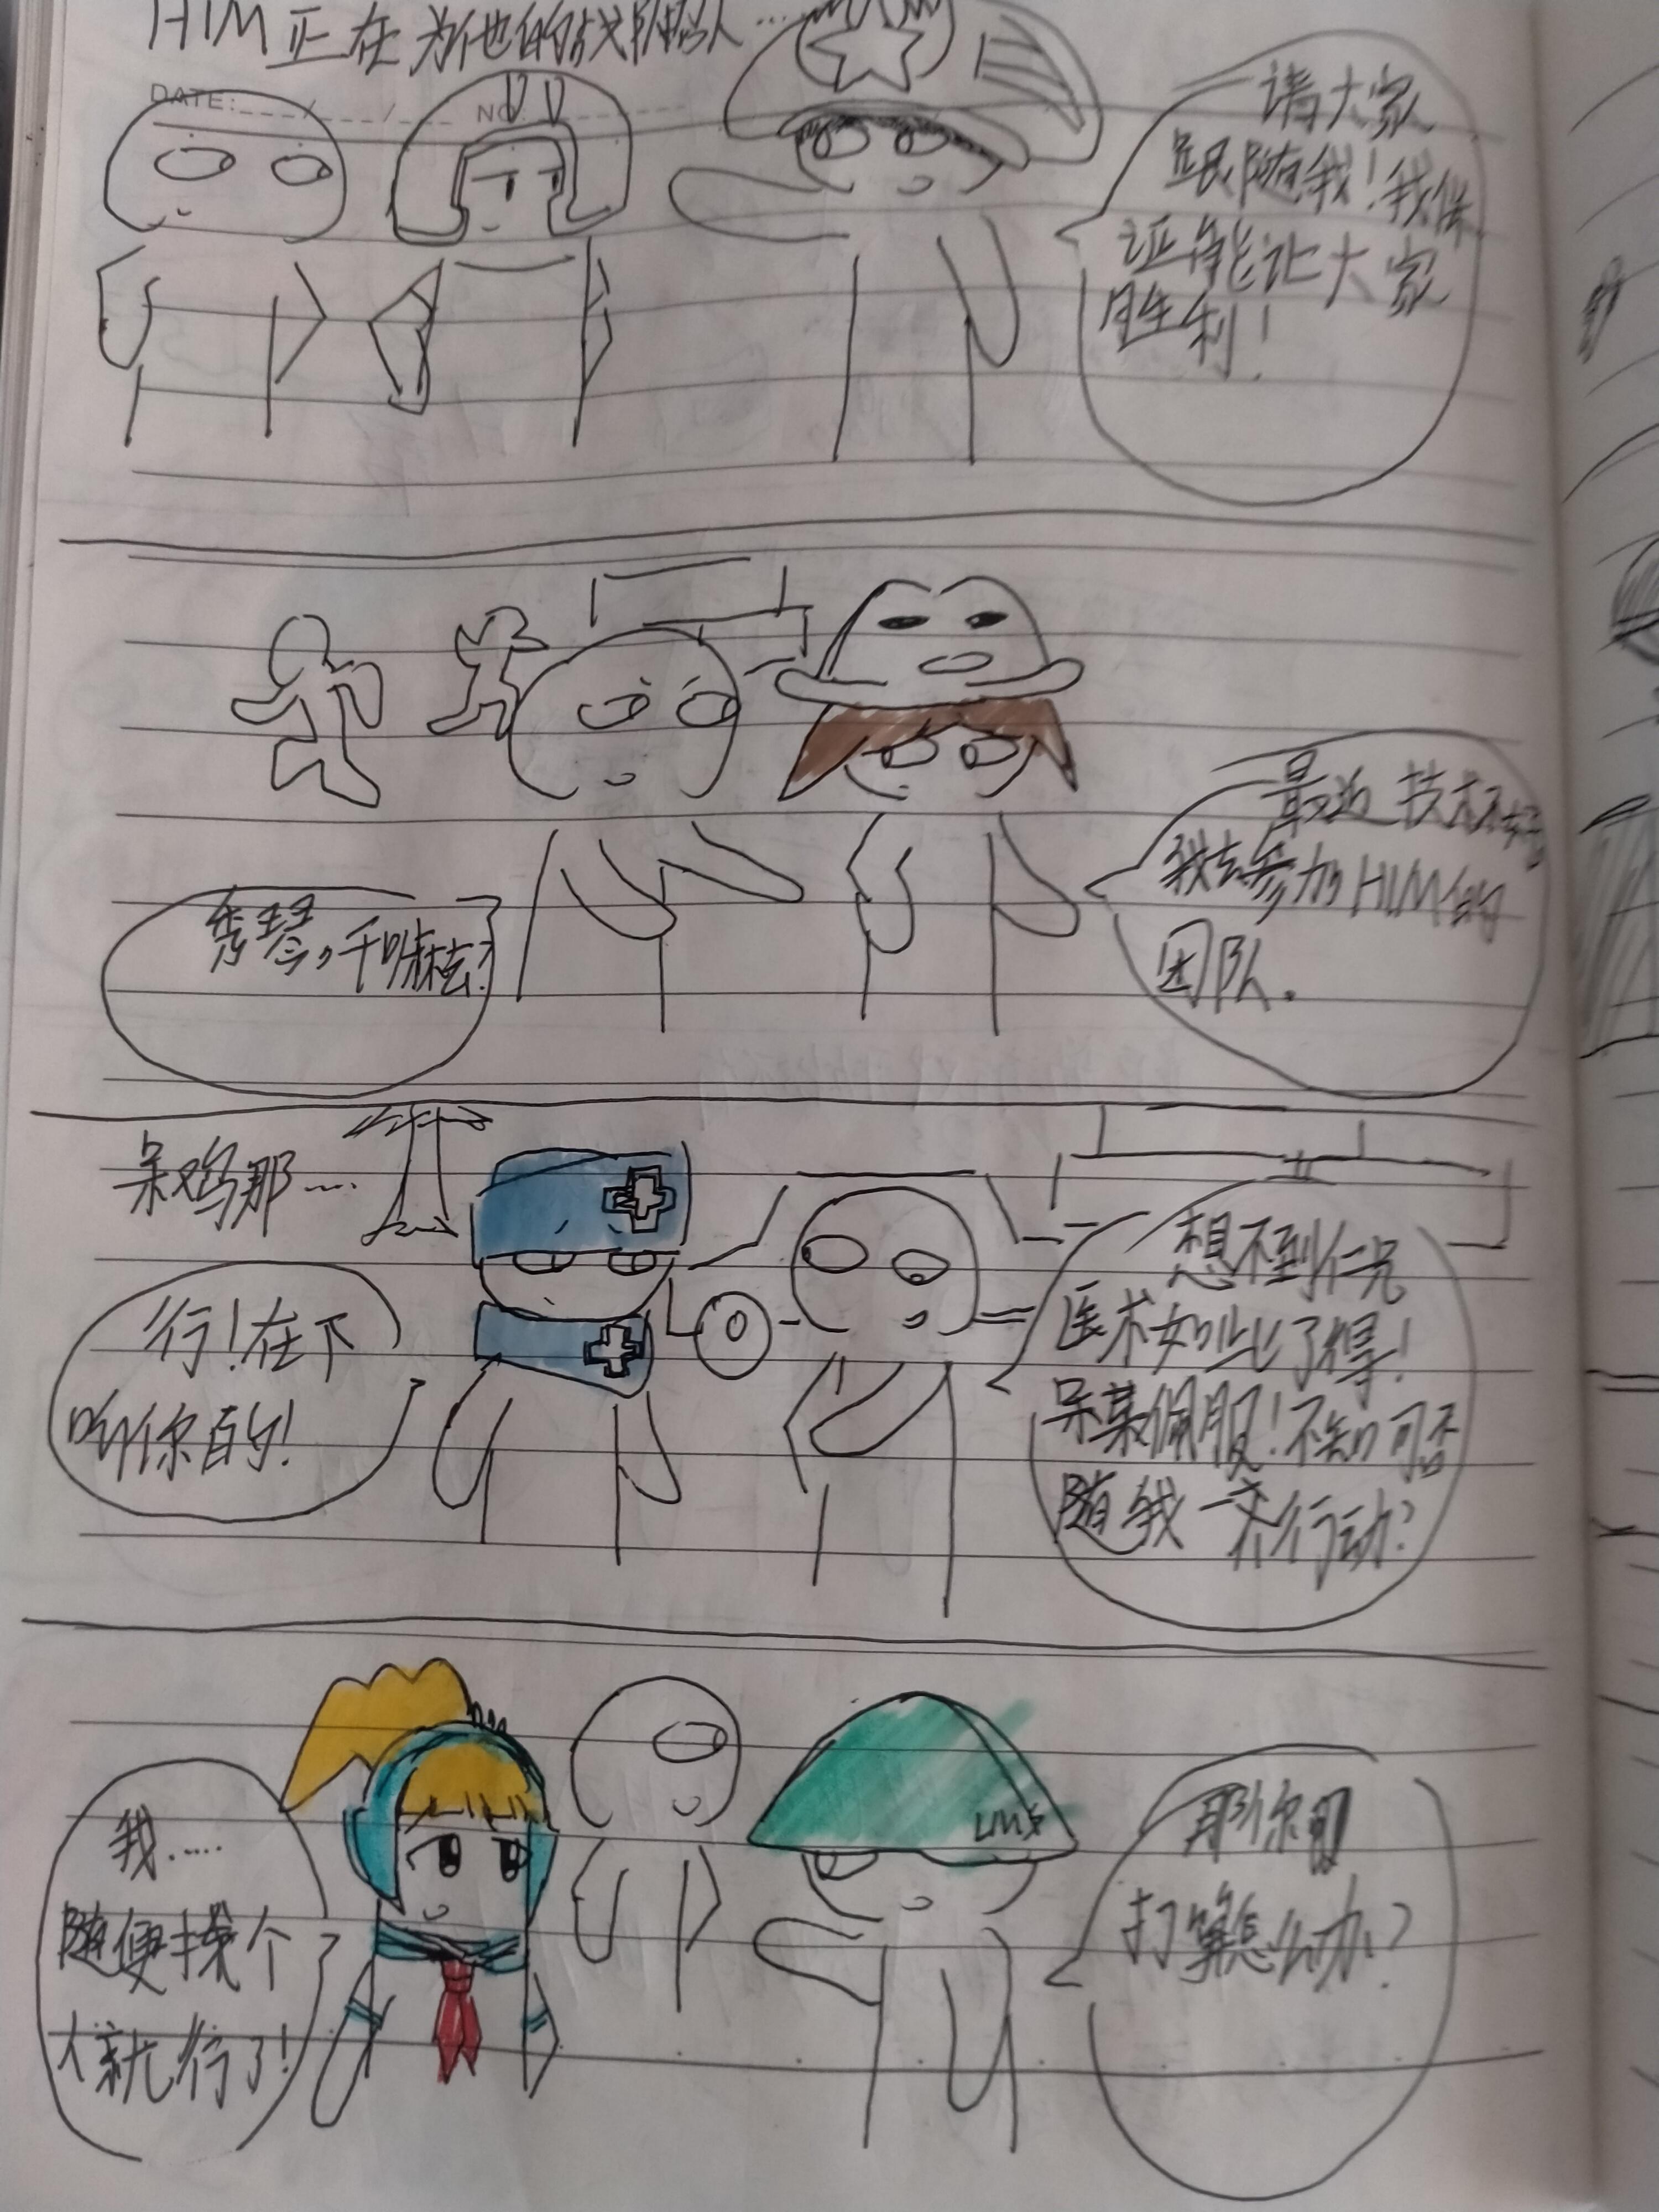 HIM正在为他的战队招人……
DATE: / / NO:
请大家
跟随我！我保
证能让大家
胜利！
最近技术不好
我去参加HIM的
团队。
秀琴，干嘛去？
呆鸡那……
想不到仁兄
医术如此了得！
呆某佩服！不知可否
随我一齐行动？
行！在下
听你的！
那你们
打算怎么办？
我……
随便操个
人就行了！